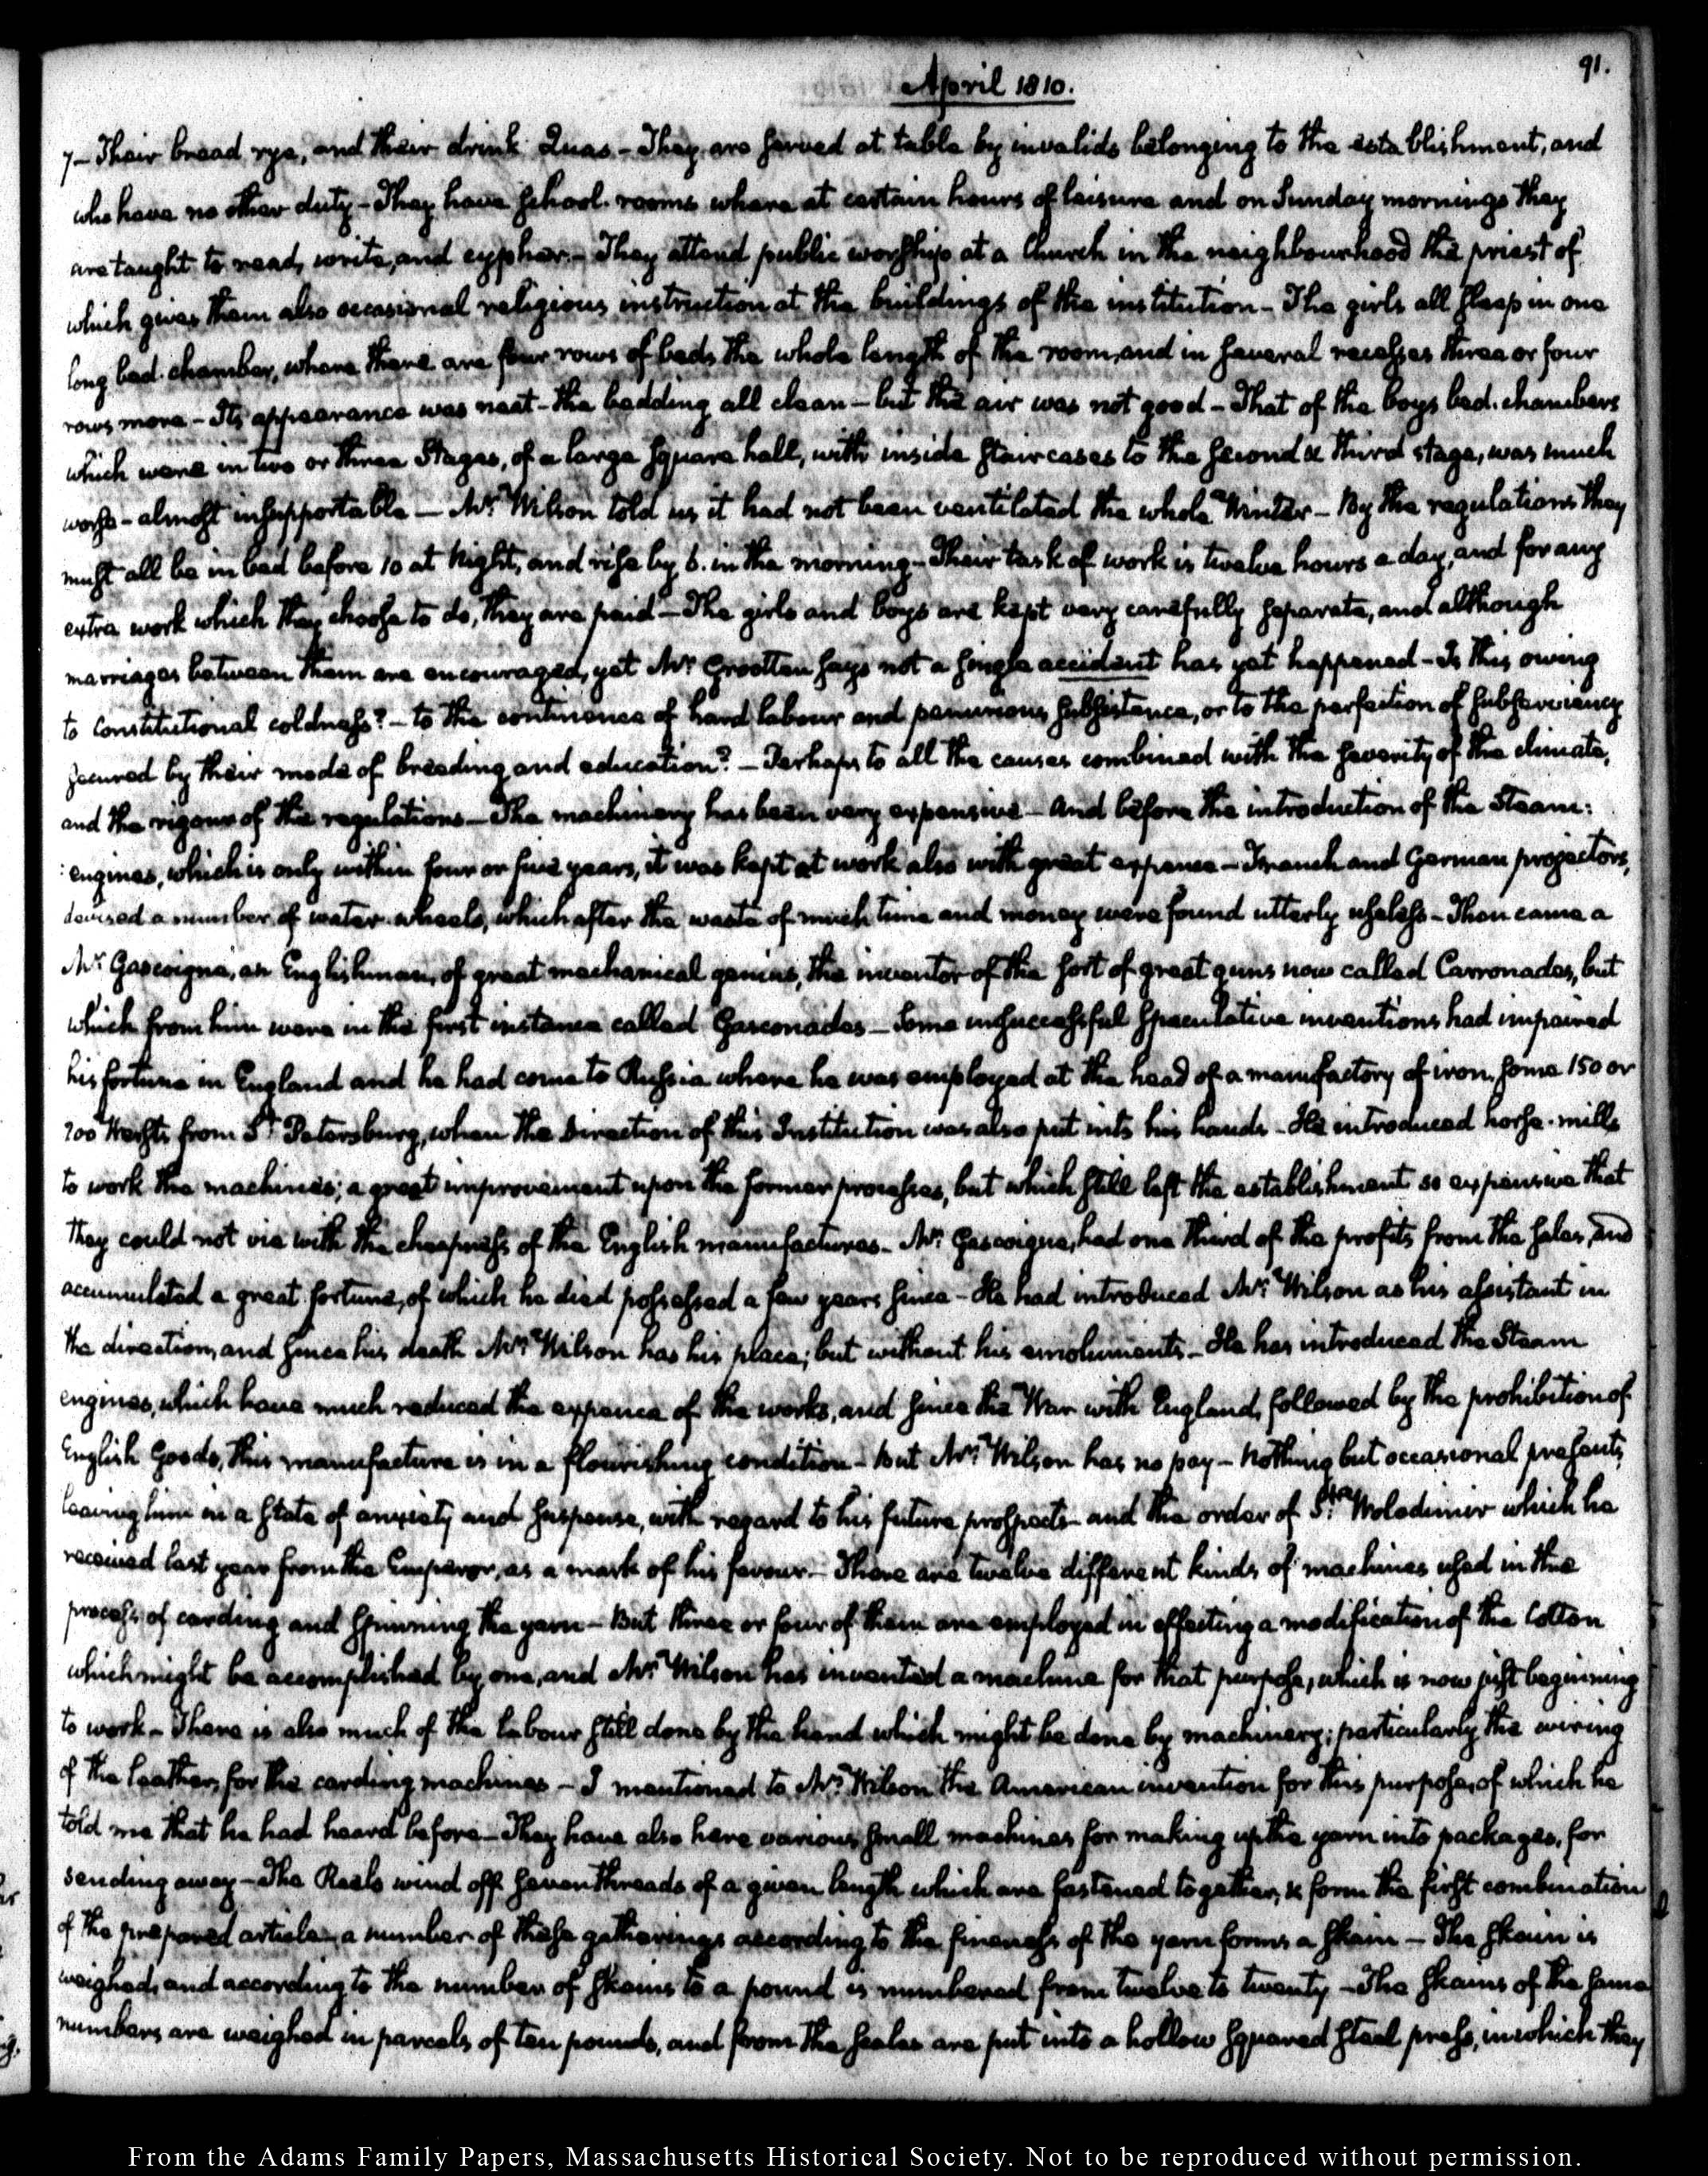 91.
April 1810.
7 - Their bread rye, and their drink Quas - They are served at table by invalids belonging to the establishment, and
who have no other duty - They have school-rooms where at certain hours of leisure and on Sunday mornings they
are taught to read, write, and cypher. - They attend public worship at a Church in the neighbourhood the priest of
which gives them also occasional religious instruction at the buildings of the institution - The girls all sleep in one
long bed-chamber, where there are four rows of beds the whole length of the room, and in several recesses three or four
rows more - Its appearance was neat - the bedding all clean - but the air was not good - That of the boys bed-chambers
which were in two or three Stages, of a large square hall, with inside staircases to the second & third stage, was much
worse - almost insupportable - Mr. Wilson told us it had not been ventilated the whole Winter - By the regulations they
must all be in bed before 10 at Night, and rise by 6. in the morning - Their task of work is twelve hours a day, and for any
extra work which they choose to do, they are paid - The girls and boys are kept very carefully separate, and although
marriages between them are encouraged, yet Mr. Grootten says not a single accident has yet happened - Is this owing
to constitutional coldness? - to the continence of hard labour and penurious subsistence, or to the perfection of subserviency
secured by their mode of breeding and education? - Perhaps to all the causes combined with the severity of the climate,
and the rigour of the regulations - The machinery has been very expensive - And before the introduction of the Steam:
:engines, which is only within four or five years, it was kept at work also with great expence - French and German projectors,
devised a number of water-wheels, which after the waste of much time and money were found utterly useless - Then came a
Mr. Gascoigne, an Englishman, of great mechanical genius, the inventor of the sort of great guns now called Carronades, but
which from him were in the first instance called Gasconades - Some unsuccessful speculative inventions had impaired
his fortune in England and he had come to Russia where he was employed at the head of a manufactory of iron some 150 or
200 Wersts from St. Petersburg, when the Direction of this Institution was also put into his hands - He introduced horse-mills
to work the machines; a great improvement upon the former processes, but which still left the establishment so expensive that
they could not vie with the cheapness of the English manufactures - Mr. Gascoigne, had one third of the profits from the sales, and
accumulated a great fortune, of which he died possessed a few years since - He had introduced Mr. Wilson as his assistant in
the direction, and since his death Mr. Wilson has his place; but without his emoluments - He has introduced the Steam
engines, which have much reduced the expence of the works, and since the War with England, followed by the prohibition of
English Goods, this manufacture is in a flourishing condition - But Mr. Wilson has no pay - Nothing but occasional presents,
leaving him in a state of anxiety and suspense, with regard to his future prospects - and the order of St. Wolodimir which he
received last year from the Emperor, as a mark of his favour. - There are twelve different kinds of machines used in the
process of carding and spinning the yarn - But three or four of them are employed in effecting a modification of the Cotton
which might be accomplished by one, and Mr. Wilson has invented a machine for that purpose, which is now just beginning
to work - There is also much of the labour still done by the hand which might be done by machinery; particularly the wiring
of the leather, for the carding machines - I mentioned to Mr. Wilson the American invention for this purpose, of which he
told me that he had heard before - They have also here various small machines for making up the yarn into packages, for
sending away - The Reels wind off seven threads of a given length which are fastened together, & form the first combination
of the prepared article - a number of these gatherings according to the fineness of the yarn forms a skain - The skain is
weighed, and according to the number of skains to a pound is numbered from twelve to twenty - The skains of the same
numbers are weighed in parcels of ten pounds, and from the scales are put into a hollow squared steel press, in which they
From the Adams Family Papers, Massachusetts Historical Society. Not to be reproduced without permission.